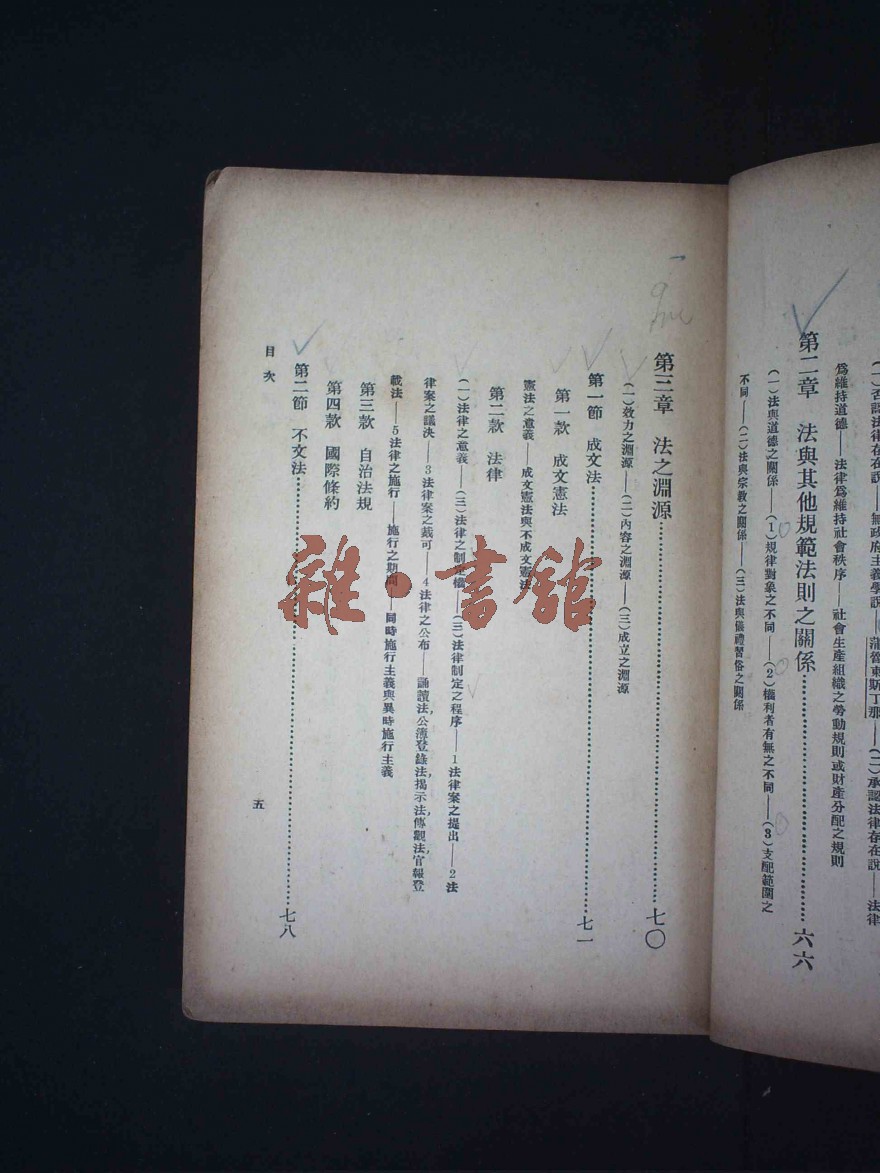 (一)否認法律存在說——無政府主義學說——蒲魯東斯丁那——(二)承認法律存在說——法律
爲維持道德——法律爲維持社會秩序——社會生產組織之勞動規則或財產分配之規則
第二章 法與其他規範法則之關係…………六六
(一)法與道德之關係——(1)規律對象之不同——(2)權利者有無之不同——(3)支配範圍之
不同——(二)法與宗教之關係——(三)法與儀禮習俗之關係
第三章 法之淵源…………七〇
(一)效力之淵源——(二)內容之淵源——(三)成立之淵源
第一節 成文法…………七一
第一款 成文憲法
憲法之意義——成文憲法與不成文憲法
第二款 法律
(一)法律之意義——(三)法律之制定權——(三)法律制定之程序——1法律案之提出——2法
律案之議決——3法律案之裁可——4法律之公布——誦讀法,公簿登錄法,揭示法,傳觀法,官報登
載法——5法律之施行——施行之期間——同時施行主義與異時施行主義
第三款 自治法規
第四款 國際條約
第二節 不文法…………七八
目次
五
雜·書館